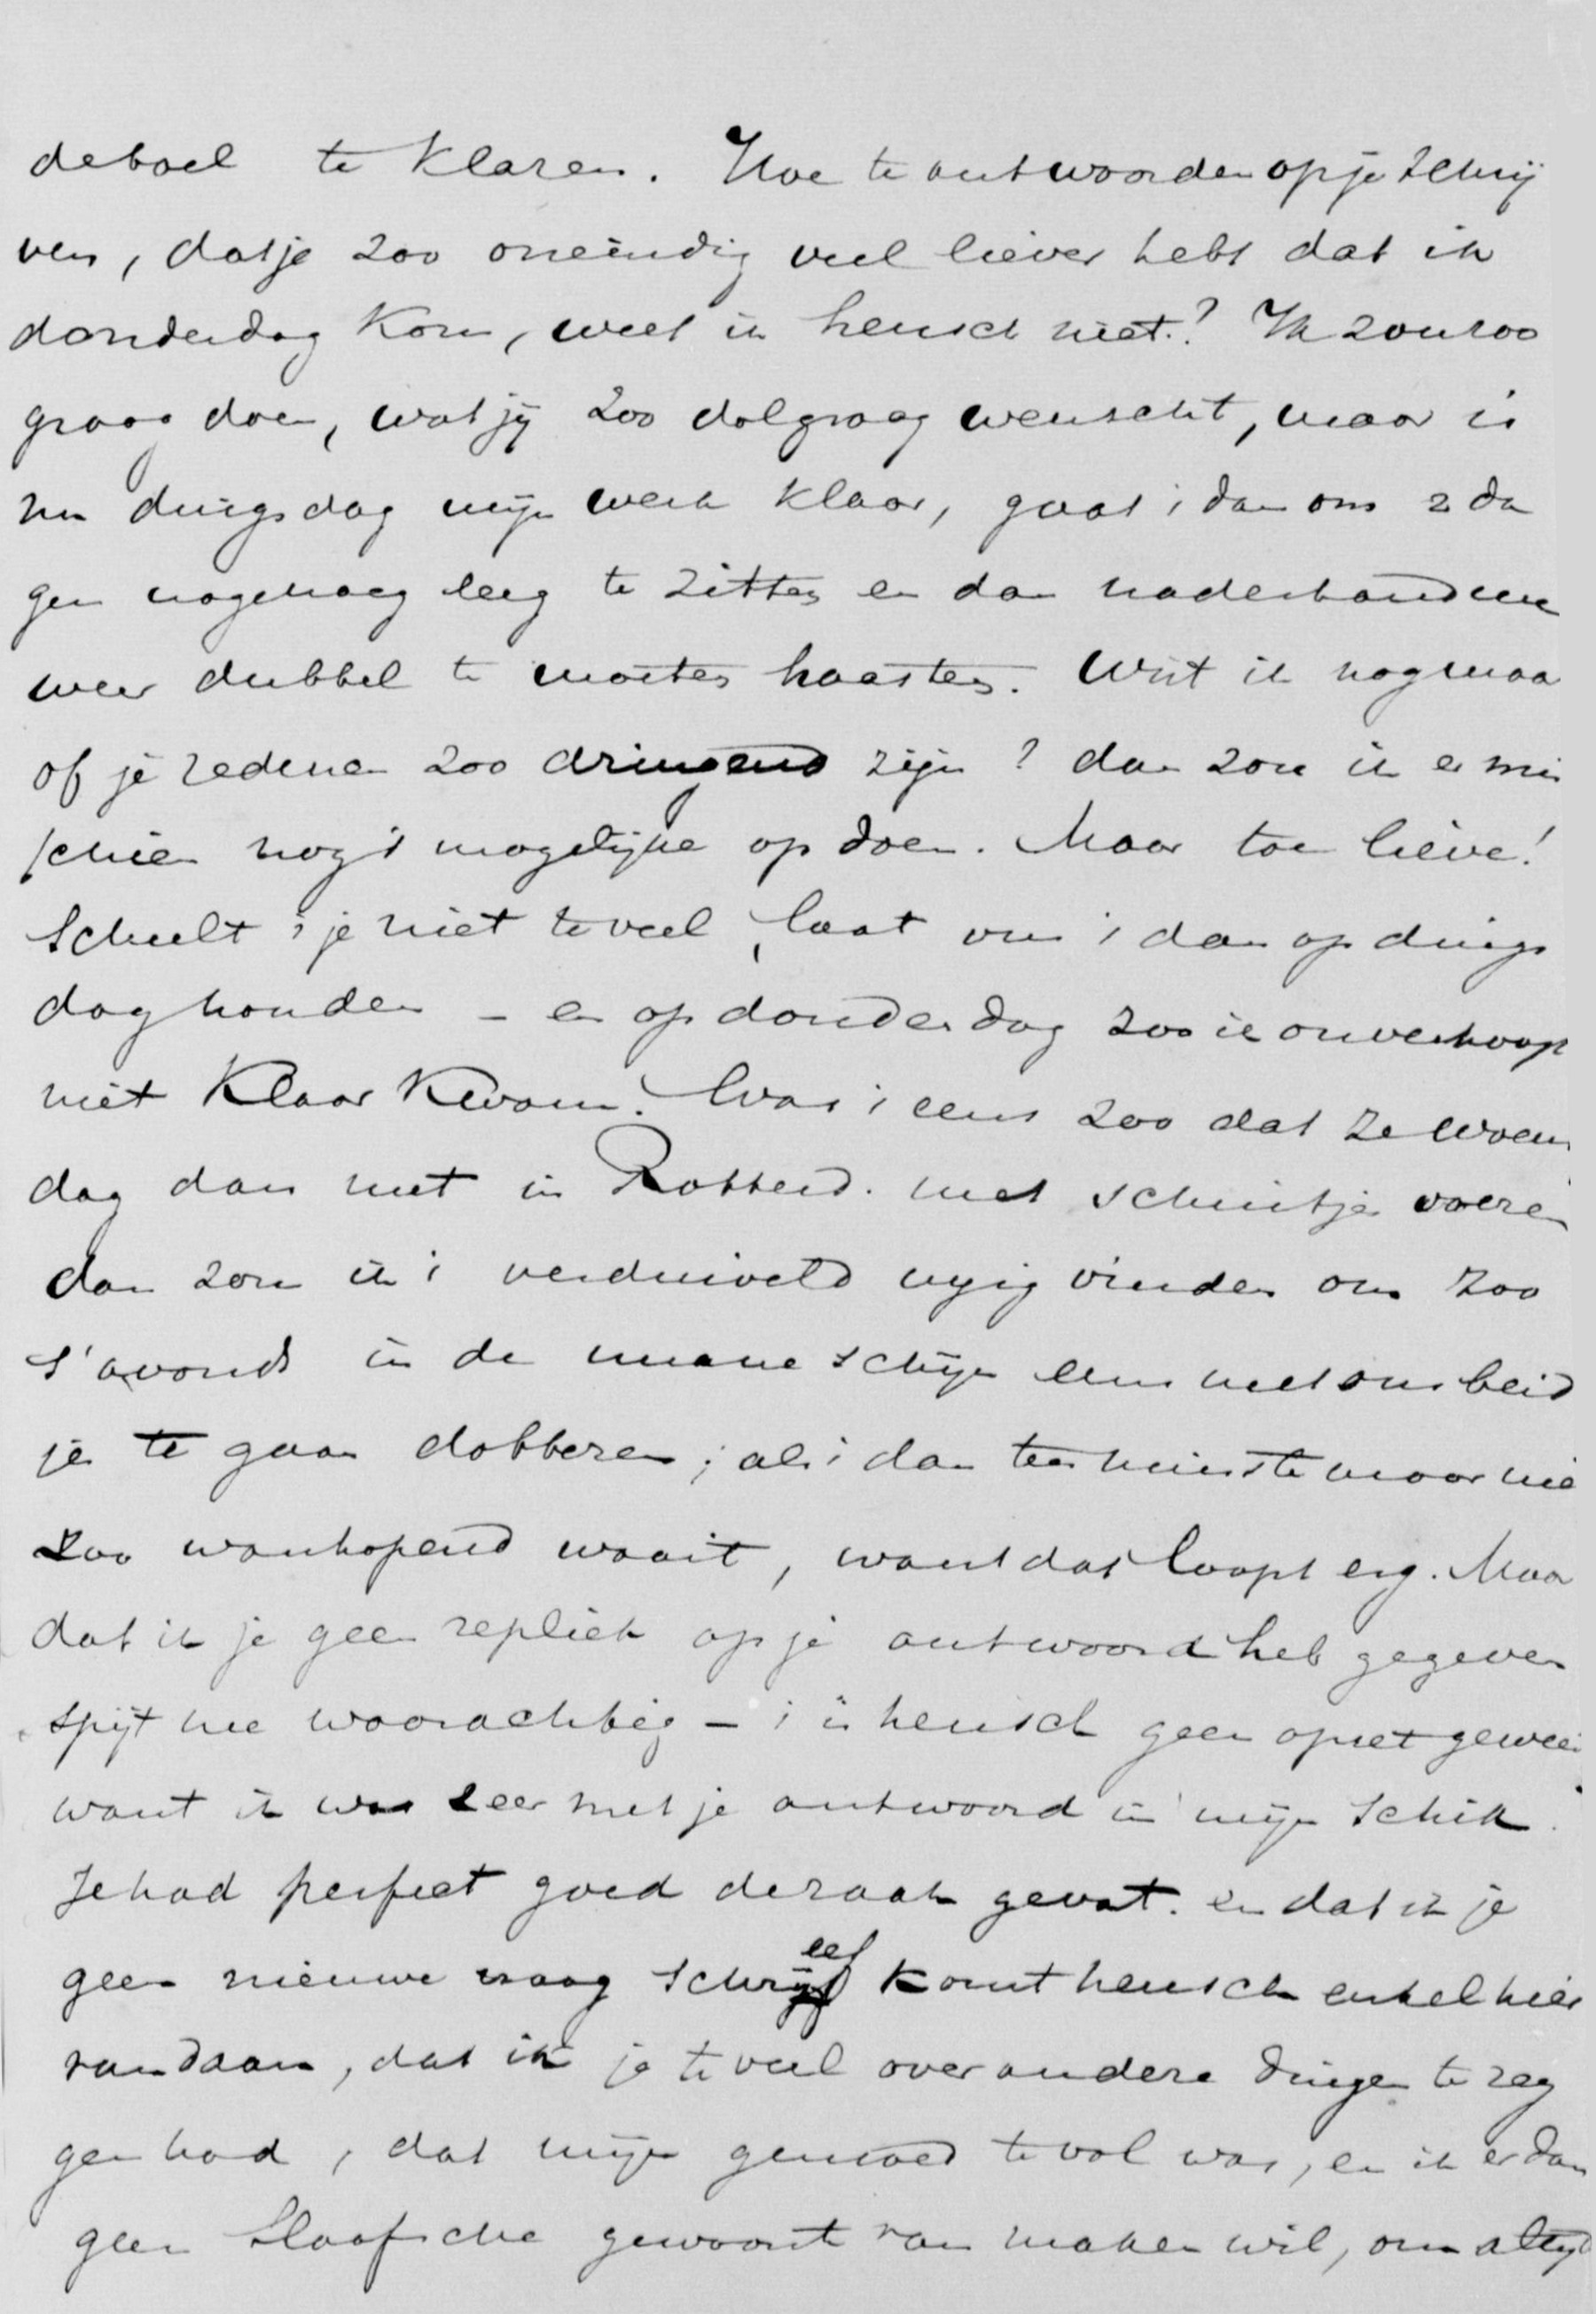 de boel te klaren. Hoe te antwoorden op je schrij
ven, dat je zoo oneindig veel liever hebt dat ik
donderdag kom, weet ik heusch niet.? Ik zou zoo
graag doen, wat jij zoo dolgraag wenscht, maar is
nu dingsdag mijn werk klaar, gaat i dan om 2 da
gen nogenoeg leeg te zitten en dan naderhand
weer dubbel te moeten haasten. Wist ik nog maa
of je redenen zoo dringend zijn? dan zou ik er mis
schien nog 't mogelijke op doen. Maar toe lieve!
Scheelt i je niet te veel, laat ons i dan op dings
dag houden – en op donderdag zoo ik onverhoop
niet klaar kwam. Was i eens zoo dat ze woens
dag dan met in Rotterd. met schuitjes voeren
dan zou ik i verduiveld nijig vinden om zoo
s'avonds in de maneschijn eens met ons beid
jes te gaan dobberen; als i dan ten minste maar nie
zoo wanhopend waait, want dat loopt erg. Maa
dat ik je geen repliek op je antwoord heb gegeven
spijt me waarachtig – i is heusch geen opzet gewees
want ik was zeer met je antwoord in mijn schik.
Je had perfect goed de zaak gevat. en dat ik je
geen nieuwe vraag schreef komt heusch enkel hier
vandaan, dat ik je te veel over andere dingen te zeg
gen had, dat mijn gemoed te vol was, en ik er dan
geen slaafsche gewoonte van maken wil, om altijd